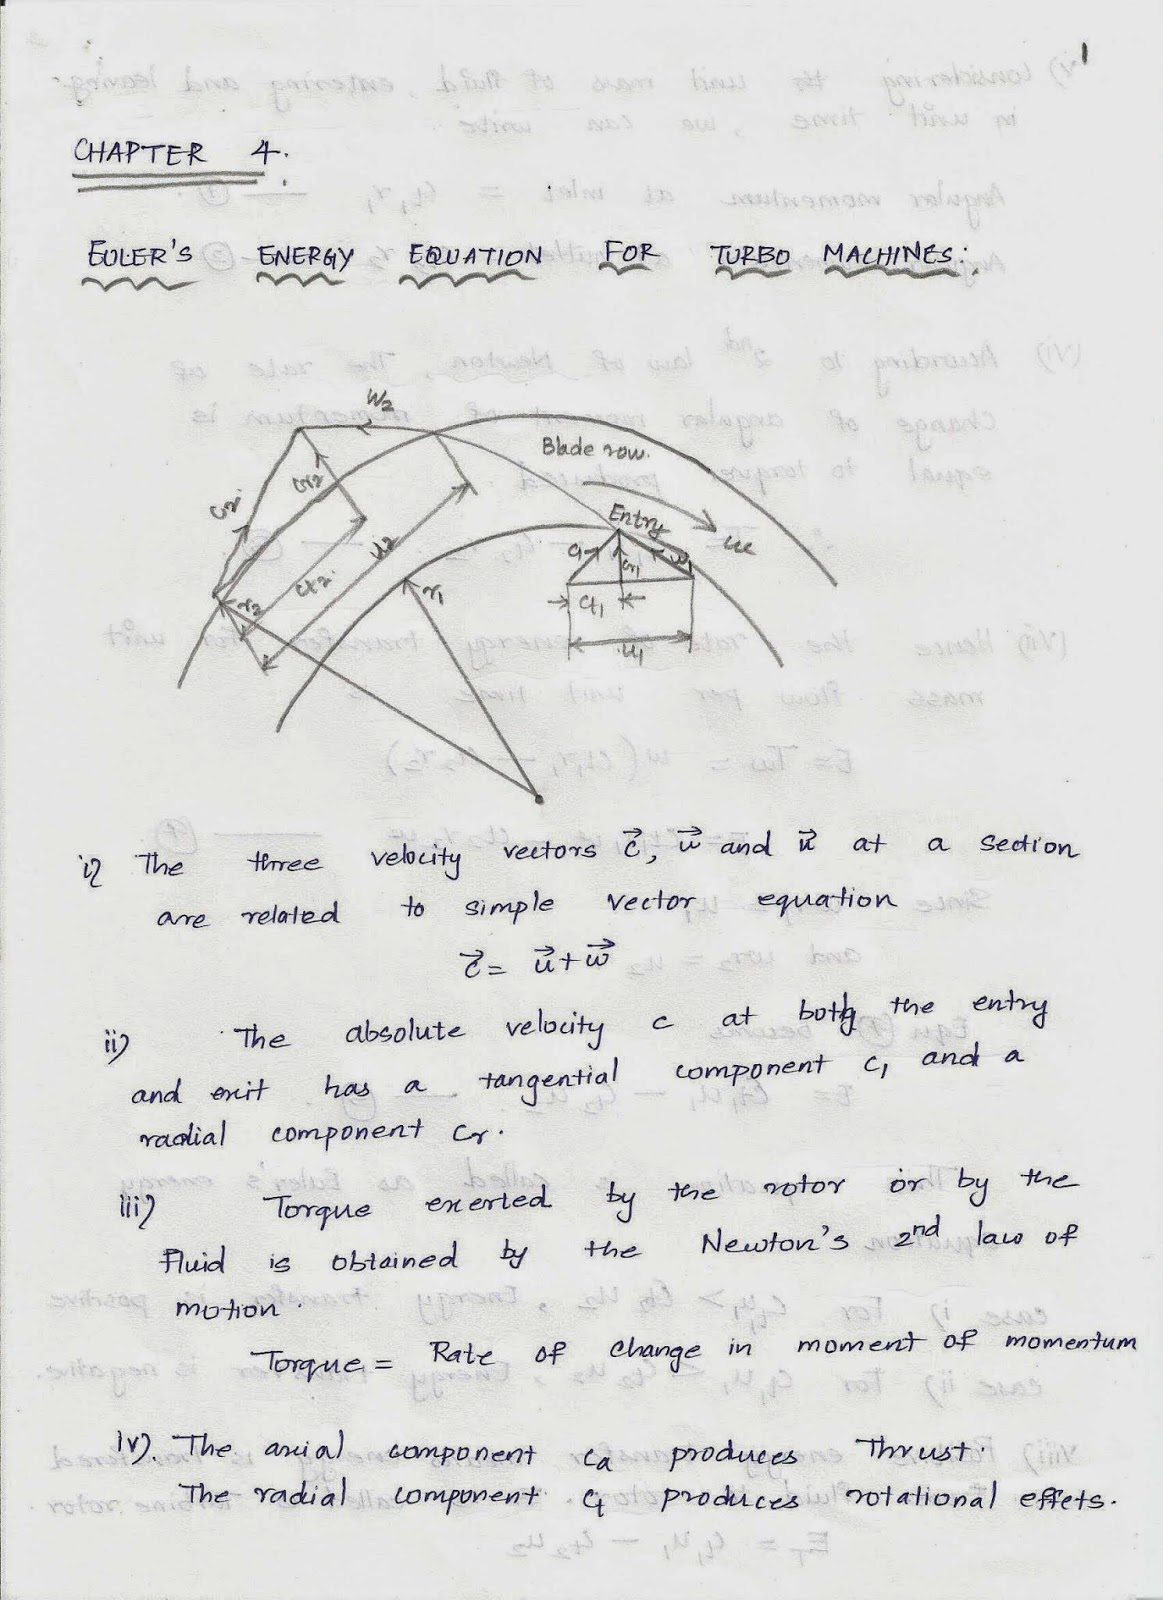 1
CHAPTER 4.
EULER'S ENERGY EQUATION FOR TURBO MACHINES:
W2
Blade row.
Cr2
C2
Entry
u
u2
C1
Cr1
w1
r2
Ct2
r1
Ct1
u1
i) The three velocity vectors c⃗, w⃗ and u⃗ at a section
are related to simple vector equation
c⃗ = u⃗ + w⃗
ii) The absolute velocity c at both the entry
and exit has a tangential component Ct and a
radial component Cr.
iii) Torque exerted by the rotor or by the
Fluid is obtained by the Newton's 2nd law of
motion.
Torque = Rate of change in moment of momentum
iv). The axial component Ca produces Thrust.
The radial component Ct produces rotational effets.